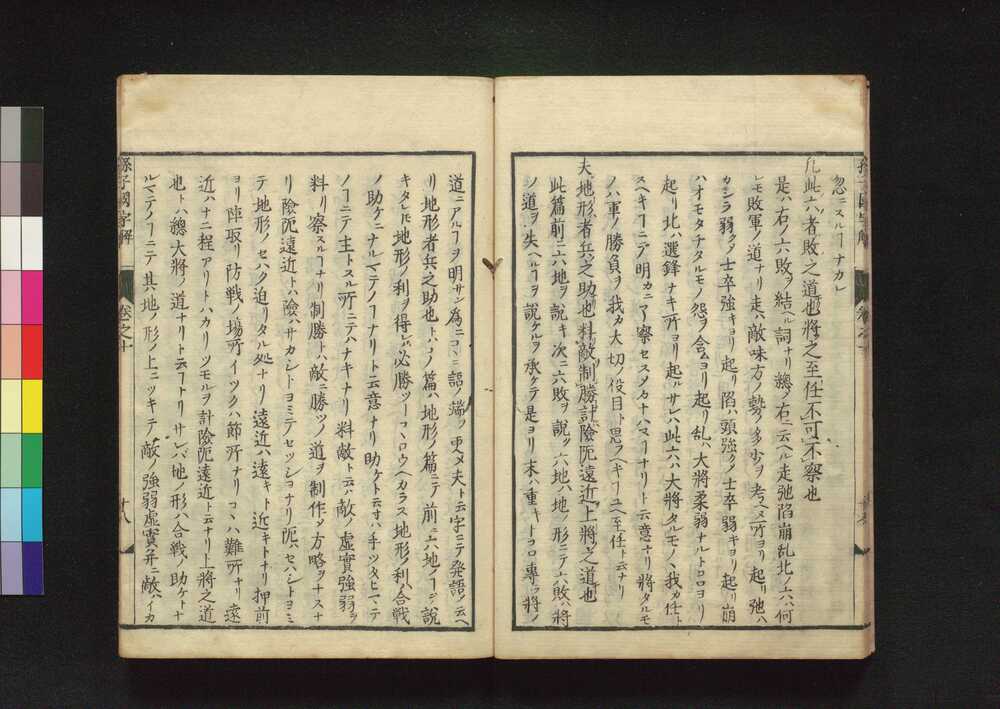 忽ニスルヿナカレ
凡此六者敗之道也將之至任不可不察也
是ハ右ノ六敗ヲ結ヘル詞ナリ總〆右ニ云ヘル走弛陷崩乱北ノ六ハ何
レモ敗軍ノ道ナリ走ハ敵味方ノ勢ノ多少ヲ考ヘヌ所ヨリ起リ弛ハ
カシラ弱ク〆士卒強キヨリ起リ陷ハ頭強ク〆士卒弱キヨリ起リ崩
ハオモタチタルモノ怨ヲ含ムヨリ起リ乱ハ大將柔弱ナルトコロヨリ
起リ北ハ選鋒ナキ所ヨリ起ルサレハ此六ハ大將タルモノヽ我カ任ト
スヘキヿニテ明カニ了察セスメカナハヌヿナリト云意ナリ將タルモ
ノハ軍ノ勝負ヲ我カ大切ノ役目ト思フヘキユヘ至任ト云ナリ
夫地形者兵之助也料敵制勝計險阨遠近上將之道也
此篇前ニ六地ヲ説キ次ニ六敗ヲ説ク六地ハ地ノ形ニテ六敗ハ將
ノ道ヲ失ヘルヿヲ説ケルヲ承ケテ是ヨリ末ハ重キトコロ專ラ將ノ
孫子國字解 卷之十 十八
道ニアルヿヲ明サン爲ニコヽニ語ノ端ヲ更メ夫ト云字ニテ発語ノ云ヘ
リ地形者兵之助也トハコノ篇ハ地形ノ篇ニテ前ニ六地ノヿヲ説
キタレ𪜈地形ノ利ヲ得レハ必勝ツトコヽロウヘカラス地形ノ利ハ合戦
ノ助ケニナルマテノヿナリト云意ナリ助ケト云寸ハ手ツタヒマテ
ノヿニテ主トスル所ニテハナキナリ料敵ト云ハ敵ノ虚實強弱ヲ
料リ察スルヿナリ制勝トハ敵ニ勝ツノ道ヲ制作〆方略ヲナスナ
リ險阨遠近トハ險ハサカシトヨミテセツシヨナリ阨ハセハシトヨミ
テ地形ノセハク迫リタル処ナリ遠近ハ遠キト近キトナリ押前
ヨリ陣取リ防戦ノ場所イツクハ節所ナリコヽハ難所ナリ遠
近ハナニ程アリトハカリツモルヲ計險阨遠近ト云ナリ上將之道
也トハ總大將ノ道ナリト云ヿトリサレハ地ノ形ハ合戦ノ助ケトナ
ルマテノヿニテ其地ノ形ノ上ニツキテ敵ノ強弱虚實并ニ敵ハイカ